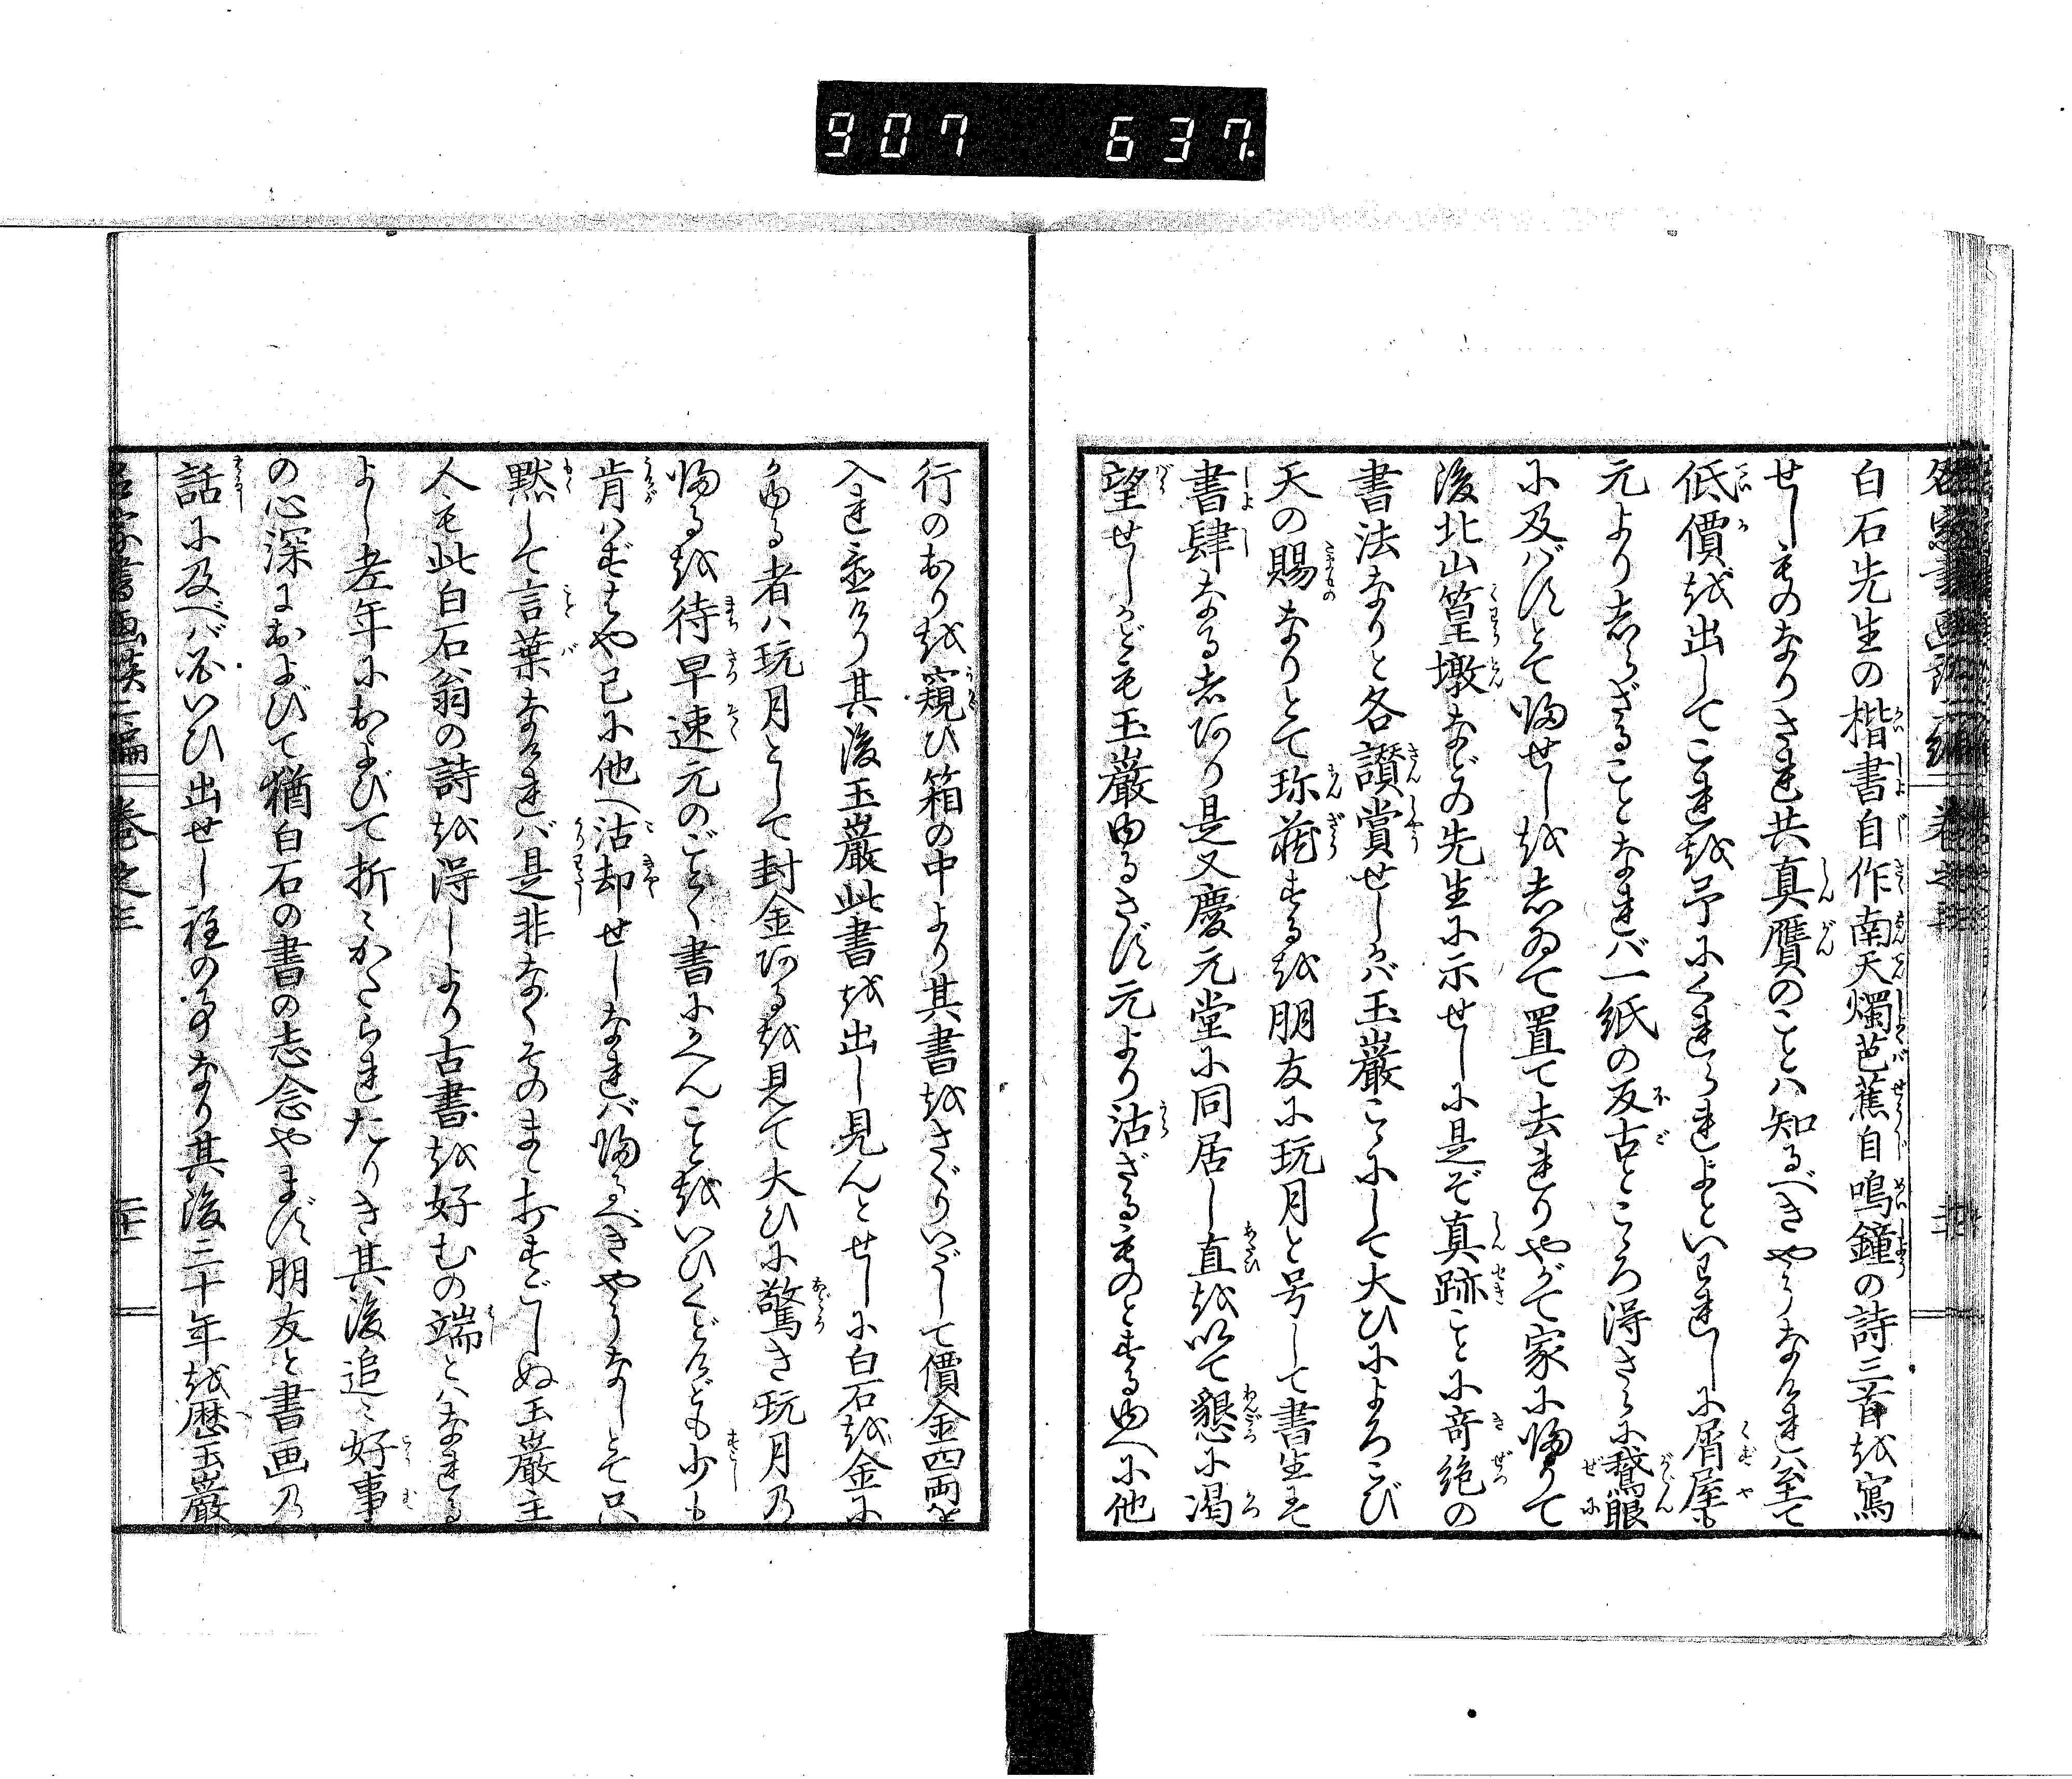 907 637
名家書画談二編 卷之三
白石先生の楷書自作南天燭芭蕉自鳴鐘の詩三首越寫
せしものなりされ共真贋のことハ知るべきやうなけれバ至て
低價越出してこれ越予にくれられよといわれしに屑屋も
元より志らざることなれバ一紙の反古ところ得さらに鵞眼
に及バずとて帰せし越志ゐて置て去れりやがて家に帰りて
後北山篁墩などの先生に示せしに是ぞ真跡ことに竒絶の
書法なりと各讃賞せしかバ玉巖こゝにして大ひによろこび
天の賜なりとて珎蔵する越朋友に玩月と号して書生を
書肆なる者あり是又慶元堂に同居し直越以て懇に渇
望せしかども玉巖ゆるさず元より沽ざるものとするゆへに他
行のおり越窺ひ箱の中より其書越さぐりいだして價金四両を
入れ置けり其後玉巖此書越出し見んとせしに白石越金に
かゆる者ハ玩月として封金ある越見て大ひに驚き玩月の
帰る越待早速元のごとく書にかへんこと越いひくどけども少も
肯ハずはや已に他へ沽却せしなれバ帰るべきやうなしとて只
黙して言葉なけれバ是非なくそのまゝ打すごしぬ玉巖主
人も此白石翁の詩越淂しより古書越好むの端とハなれる
よし老年におよびて折々かたられたりき其後追々好事
の心深におよびて猶白石の書の志念やまず朋友と書画の
話に及べバ必いひ出せし程の事なり其後三十年越歴玉巖
名家書画談二編 卷之三 二十